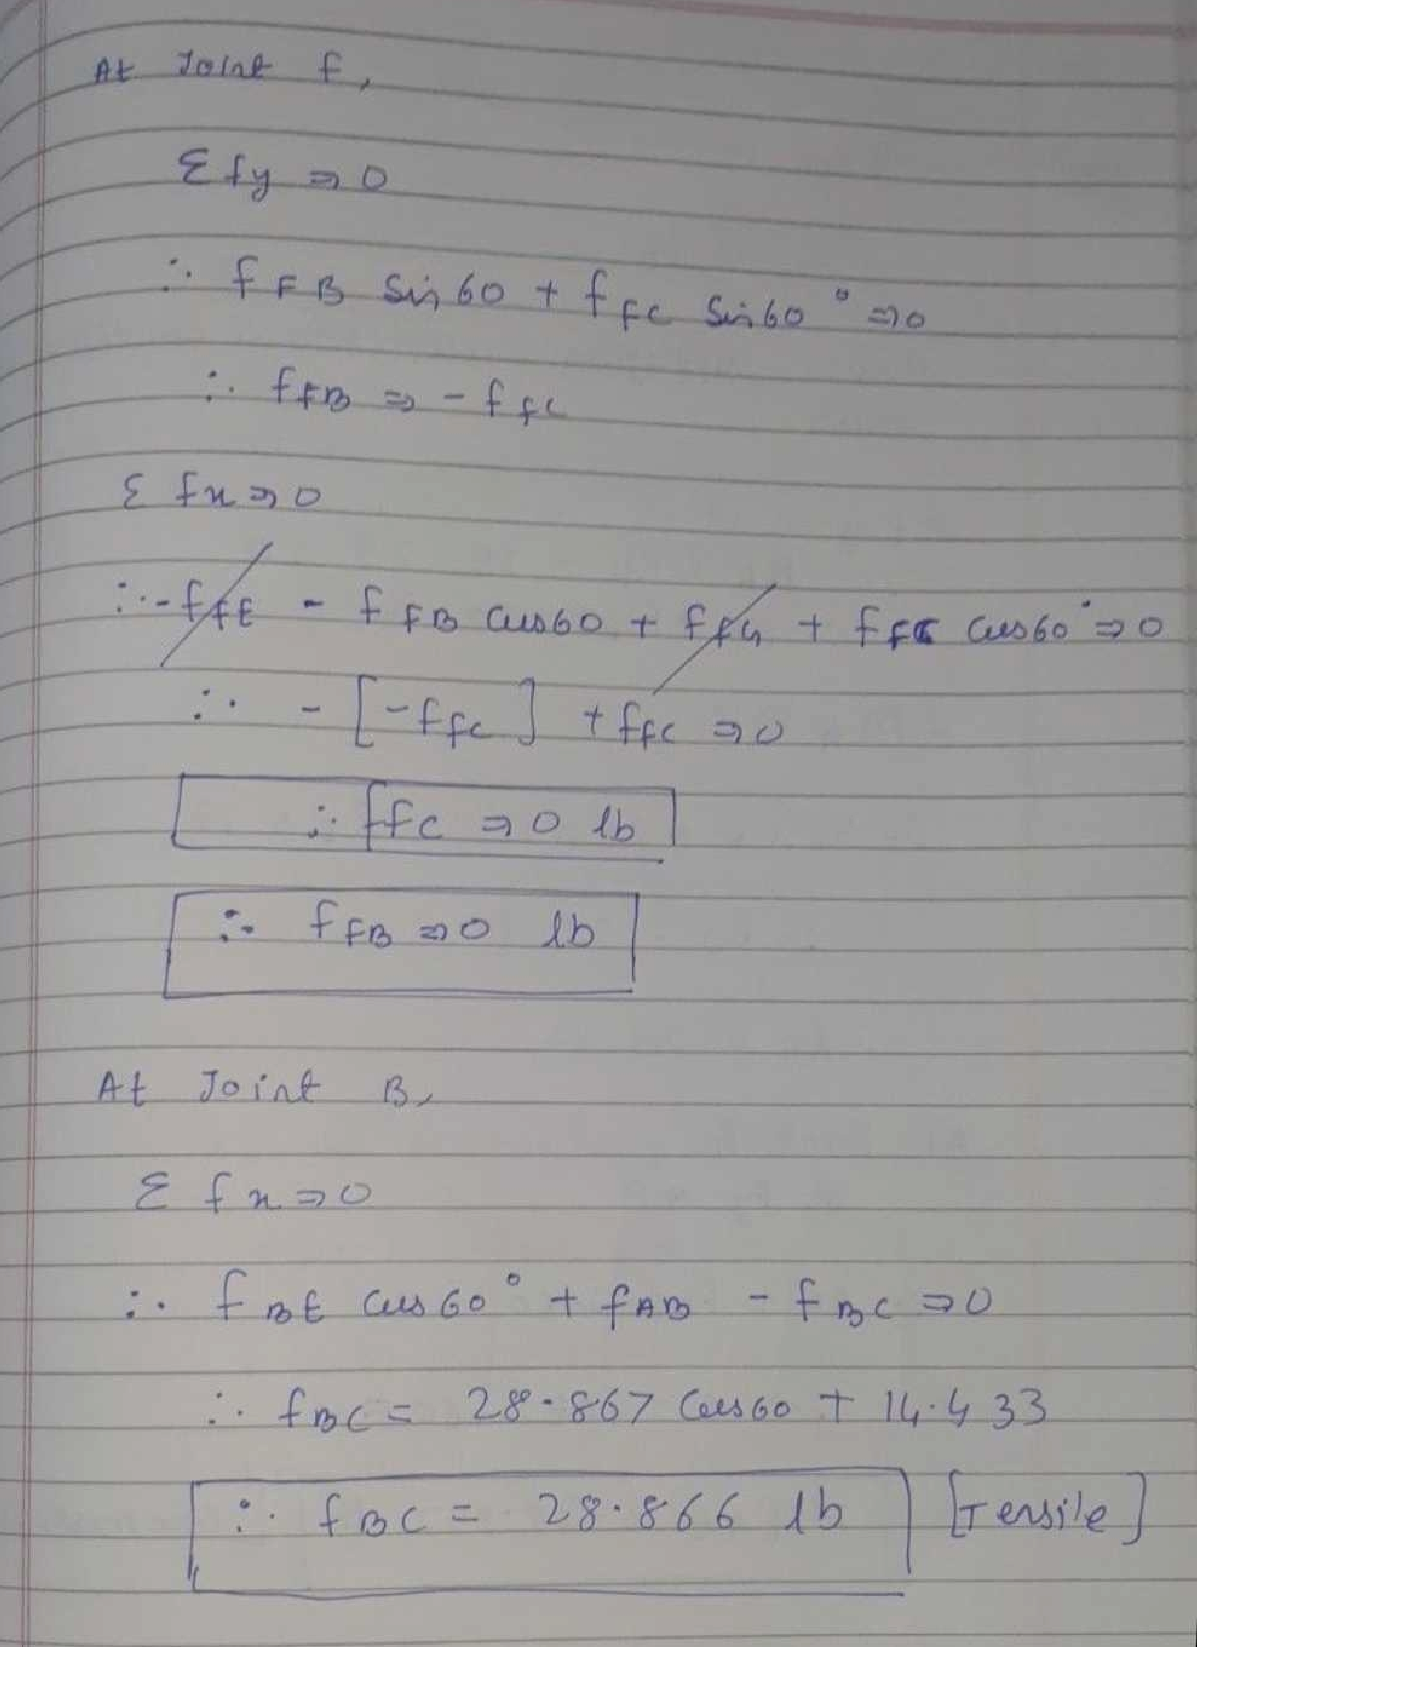 At Joint f,
Σ fy ⇒ 0
∴ f FB Sin 60 + f FC Sin 60° ⇒ 0
∴ f FB ⇒ - f FC
Σ fx ⇒ 0
∴ - f FE - f FB Cos 60 + f FG + f FC Cos 60° ⇒ 0
∴ - [ - f FC ] + f FC ⇒ 0
∴ f FC ⇒ 0 lb
∴ f FB ⇒ 0 lb
At Joint B,
Σ fx ⇒ 0
∴ f BE Cos 60° + f AB - f BC ⇒ 0
∴ f BC = 28.867 Cos 60 + 14.433
∴ f BC = 28.866 lb [Tensile]